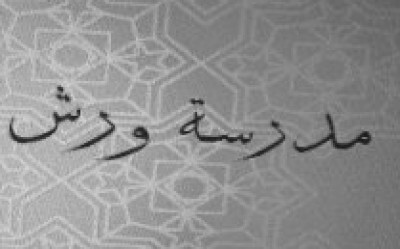 مدرسة ورش